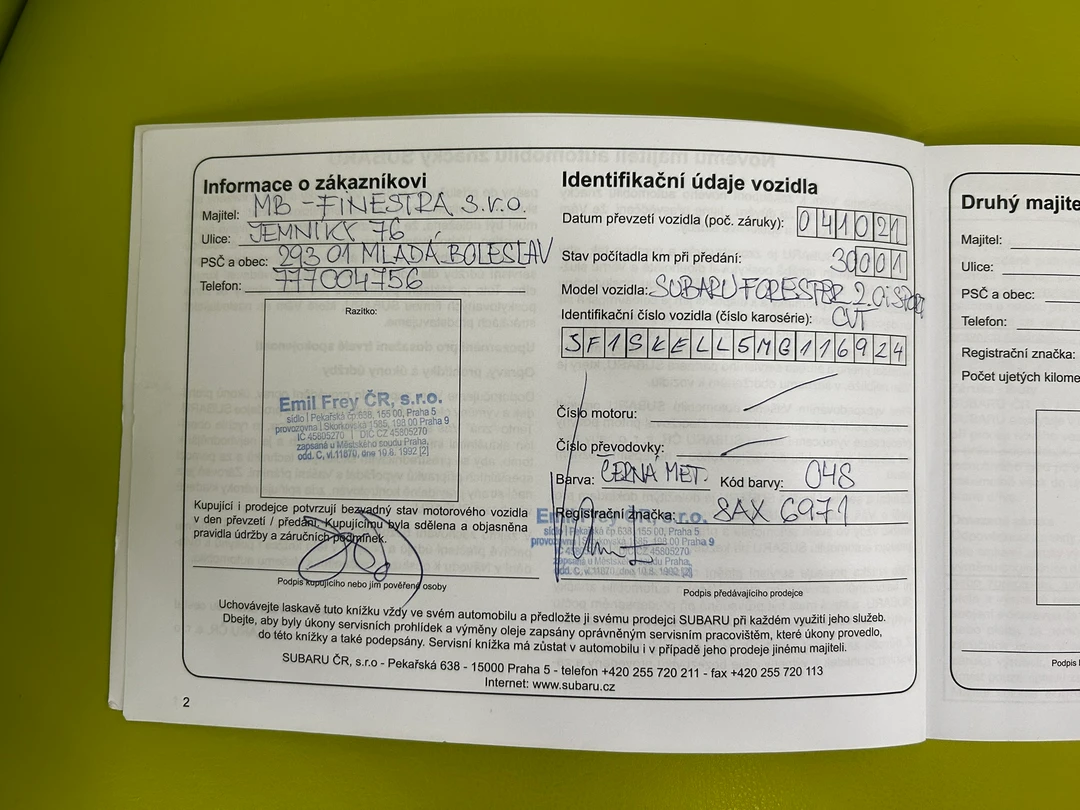 Informace o zákazníkovi
Majitel: MB - FINESTRA S.r.o.
Ulice: JEMNÍKY 76
PSČ a obec: 293 01 MLADÁ BOLESLAV
Telefon: 777004756
Razítko:
Emil Frey ČR, s.r.o.
sídlo | Pekařská čp.638, 155 00, Praha 5
provozovna | Skorkovská 1585, 198 00 Praha 9
IČ 45805270 | DIČ CZ 45805270
zapsaná u Městského soudu Praha,
odd. C, vl.11870, dne 10.8. 1992 [2]
Kupující i prodejce potvrzují bezvadný stav motorového vozidla
v den převzetí / předání. Kupujícímu byla sdělena a objasněna
pravidla údržby a záručních podmínek.
Podpis kupujícího nebo jím pověřené osoby
Identifikační údaje vozidla
Datum převzetí vozidla (poč. záruky): 041021
Stav počítadla km při předání: 30001
Model vozidla: SUBARU FORESTER 2.0i SPORT
CVT
Identifikační číslo vozidla (číslo karosérie):
JF1SKELL5MG116924
Číslo motoru:
Číslo převodovky:
Barva: ČERNÁ MET. Kód barvy: 048
Registrační značka: 8AX 6971
Emil Frey ČR, s.r.o.
sídlo | Pekařská čp.638, 155 00, Praha 5
provozovna | Skorkovská 1585, 198 00 Praha 9
45805270
zapsaná u Městského
odd. C, vl.11870, dne 10.8. 1992 [2]
Podpis předávajícího prodejce
Uchovávejte laskavě tuto knížku vždy ve svém automobilu a předložte ji svému prodejci SUBARU při každém využití jeho služeb.
Dbejte, aby byly úkony servisních prohlídek a výměny oleje zapsány oprávněným servisním pracovištěm, které úkony provedlo,
do této knížky a také podepsány. Servisní knížka má zůstat v automobilu i v případě jeho prodeje jinému majiteli.
SUBARU ČR, s.r.o - Pekařská 638 - 15000 Praha 5 - telefon +420 255 720 211 - fax +420 255 720 113
Internet: www.subaru.cz
2
Druhý majite
Majitel:
Ulice:
PSČ a obec:
Telefon:
Registrační značka:
Počet ujetých kilome
Podpis